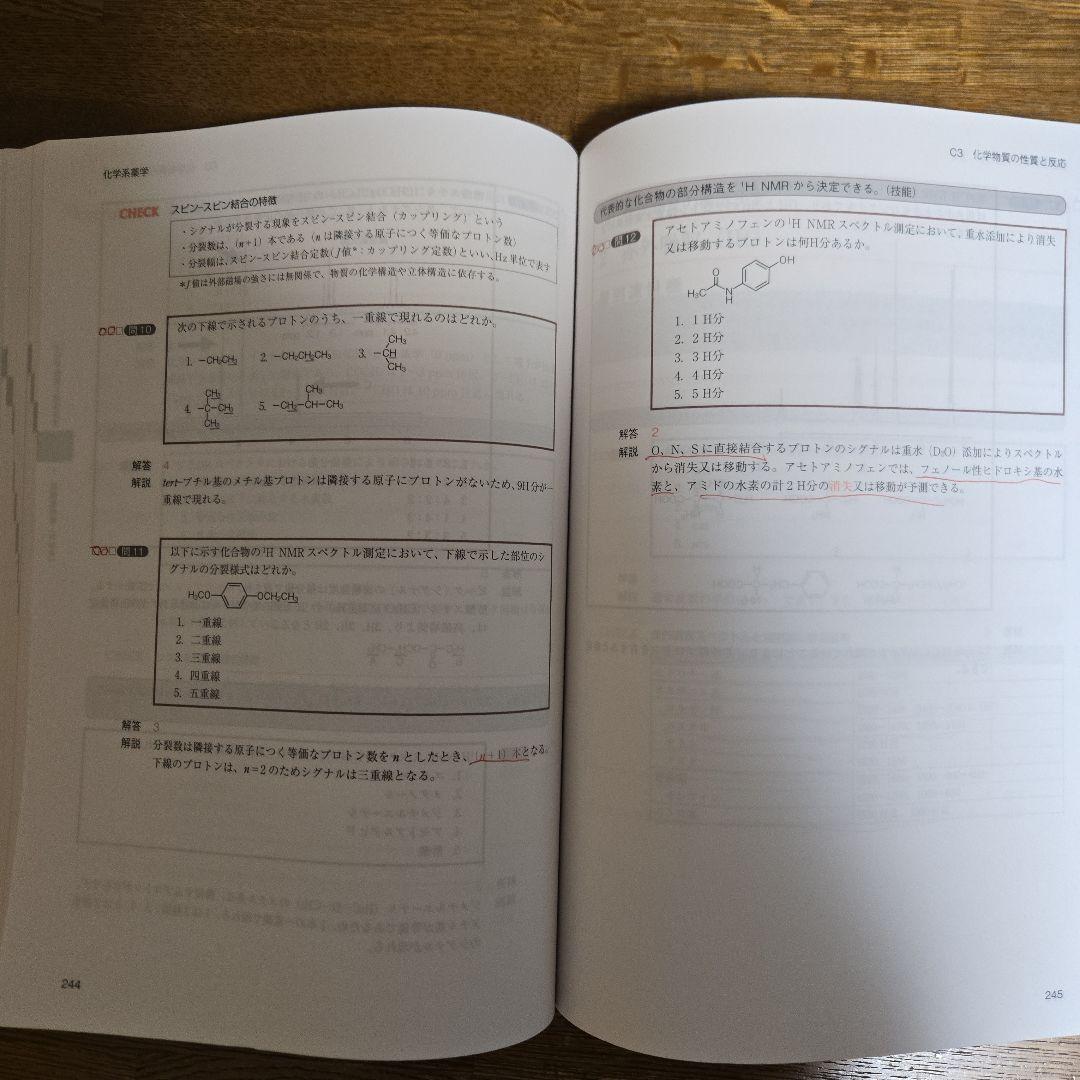 化学系薬学
CHECK スピン-スピン結合の特徴
・シグナルが分裂する現象をスピン-スピン結合（カップリング）という
・分裂数は、(n+1) 本である（n は隣接する原子につく等価なプロトン数）
・分裂幅は、スピン-スピン結合定数（J値*：カップリング定数）といい、Hz 単位で表す
*J値は外部磁場の強さには無関係で、物質の化学構造や立体構造に依存する。
問10 次の下線で示されるプロトンのうち、一重線で現れるのはどれか。
1. −CH₂CH₃ 2. −CH₂CH₂CH₃ 3. −CH CH₃ CH₃
4. −C−CH₃ CH₃ CH₃ 5. −CH₂−CH−CH₃ CH₃
解答 4
解説 tert-ブチル基のメチル基プロトンは隣接する原子にプロトンがないため、9H分が一
重線で現れる。
問11 以下に示す化合物の¹H NMRスペクトル測定において、下線で示した部位のシ
グナルの分裂様式はどれか。
H₃CO− −OCH₂CH₃
1. 一重線
2. 二重線
3. 三重線
4. 四重線
5. 五重線
解答 3
解説 分裂数は隣接する原子につく等価なプロトン数を n としたとき、(n+1) 本となる。
下線のプロトンは、n=2のためシグナルは三重線となる。
244
C3 化学物質の性質と反応
代表的な化合物の部分構造を ¹H NMR から決定できる。（技能）
問12 アセトアミノフェンの¹H NMRスペクトル測定において、重水添加により消失
又は移動するプロトンは何H分あるか。
H₃C O N H OH
1. 1 H分
2. 2 H分
3. 3 H分
4. 4 H分
5. 5 H分
解答 2
解説 O、N、Sに直接結合するプロトンのシグナルは重水（D₂O）添加によりスペクトル
から消失又は移動する。アセトアミノフェンでは、フェノール性ヒドロキシ基の水
素と、アミドの水素の計2H分の消失又は移動が予測できる。
245